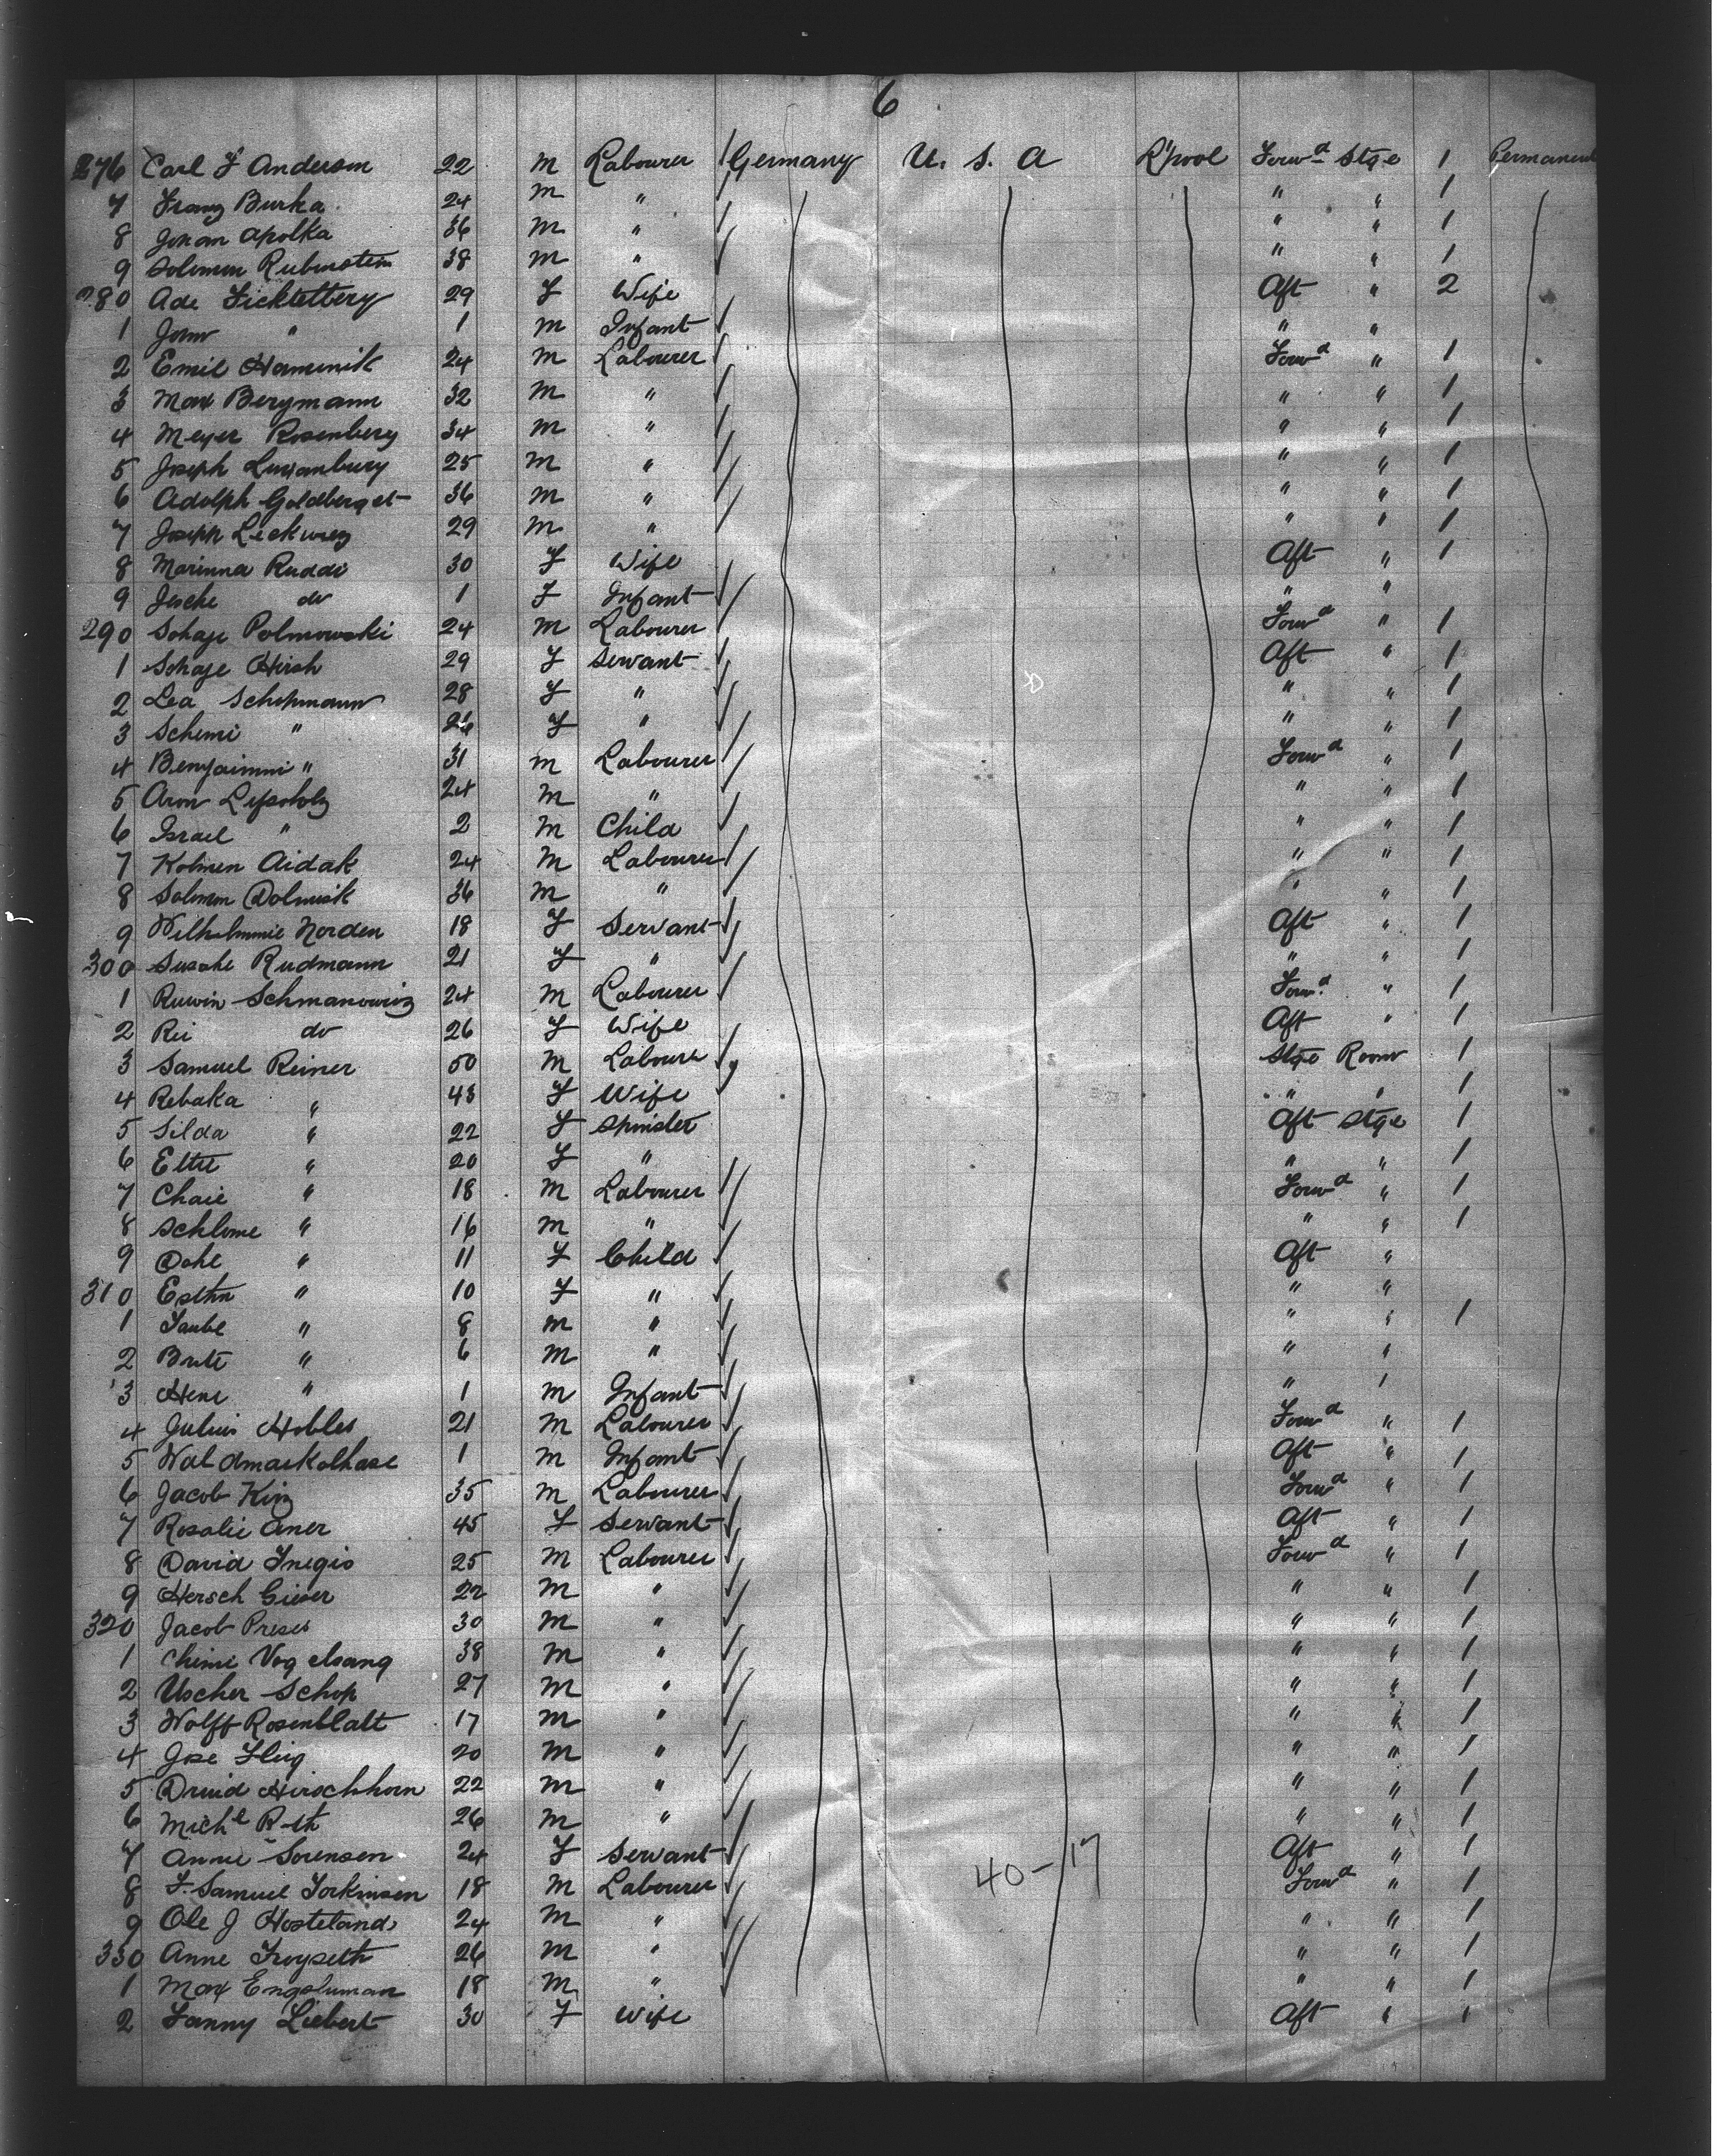 6
276 Carl F Anderson 22 m Labourer Germany U. S. A L'pool Forwd Stge 1 Permanent
7 Franz Burka 24 m " " " 1
8 Johan Apolka 36 m " " " 1
9 Solomon Rubinstein 38 m " " " 1
280 Ade Ficktetbery 29 F Wife Aft " 2
1 John " 1 m Infant " "
2 Emil Hominik 24 m Labourer Forwd " 1
3 Max Bergmann 32 m " " " 1
4 Meyer Rosenberg 34 m " " " 1
5 Joseph 25 m " " " 1
6 Adolph Goldberg 36 m " " " 1
7 Joseph 29 m " " " 1
8 Marinna Ruddi 30 F Wife Aft " 1
9 Jesche do 1 F Infant " "
290 Schaje Polmowski 24 m Labourer Forwd " 1
1 Schaje Hirsh 29 F Servant Aft " 1
2 Lea Schopmann 28 F " " " 1
3 Schemi " F " " " 1
4 Benjaimni " 31 m Labourer Forwd " 1
5 Aron Lipsholz 24 m " " " 1
6 Israel " 2 m Child " " 1
7 Kolmen Aidak 24 m Labourer " " 1
8 Solomon Dolmisk 36 m " " " 1
9 Wilhelmmie Norden 18 F Servant Aft " 1
300 Susche Rudmann 21 F " " " 1
1 Ruwin Schmanowiz 24 m Labourer Forwd " 1
2 Rei do 26 F Wife Aft " 1
3 Samuel Reiner 50 m Labourer Stge Room 1
4 Rebaka " 48 F Wife " " 1
5 Silda " 22 F Spinster Aft Stge 1
6 Eltie " 20 F " " " 1
7 Chaie " 18 m Labourer Forwd " 1
8 Schlome " 16 m " " " 1
9 Dohe " 11 F Child Aft "
310 Esthn " 10 F " " "
1 Taube " 8 m " " " 1
2 Brite " 6 m " " "
3 Hene " 1 m Infant " "
4 Julius Hobles 21 m Labourer Forwd " 1
5 Waldmarkolhase 1 m Infant Aft " 1
6 Jacob Kinz 35 m Labourer Forwd " 1
7 Rosalie Aner 45 F Servant Aft " 1
8 David Fnegis 25 m Labourer Forwd " 1
9 Hersch Gieser 22 m " " " 1
320 Jacob Preses 30 m " " " 1
1 Chime Vogelsang 38 m " " " 1
2 Uscher Schop 27 m " " " 1
3 Wolff Rosenblatt 17 m " " " 1
4 Jose Flieg 20 m " " " 1
5 Druid Hirschhorn 22 m " " " 1
6 Michl Roth 26 m " " " 1
7 Annie Sorensen 24 F Servant Aft " 1
40-17
8 F. Samuel Torkinsen 18 m Labourer Forwd " 1
9 Ole J Hosteland 24 m " " " 1
330 Anne Froyseth 26 m " " " 1
1 Max Engeluman 18 m " " " 1
2 Fanny Liebert 30 F Wife Aft " 1